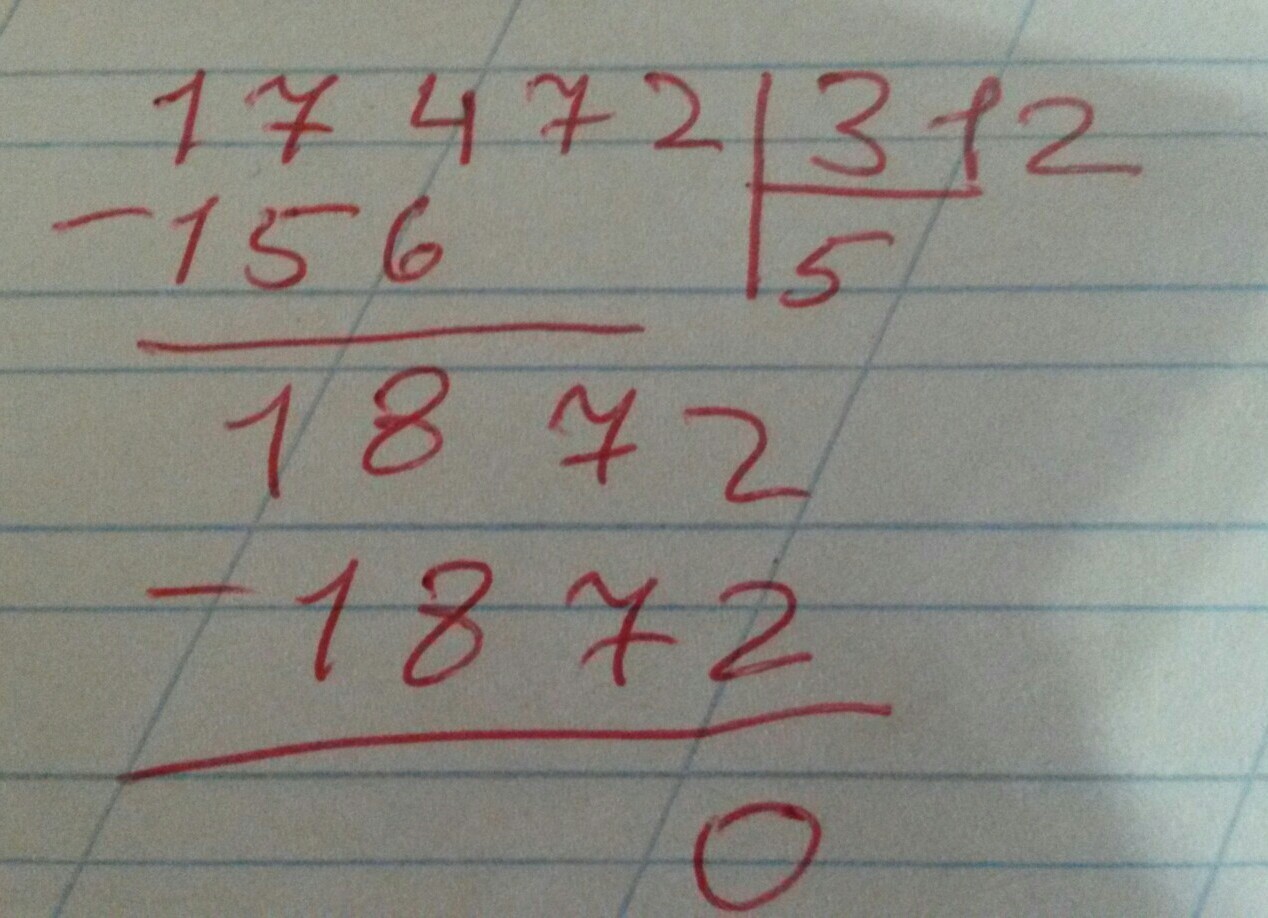 17472 312
-156 5
1872
-1872
0